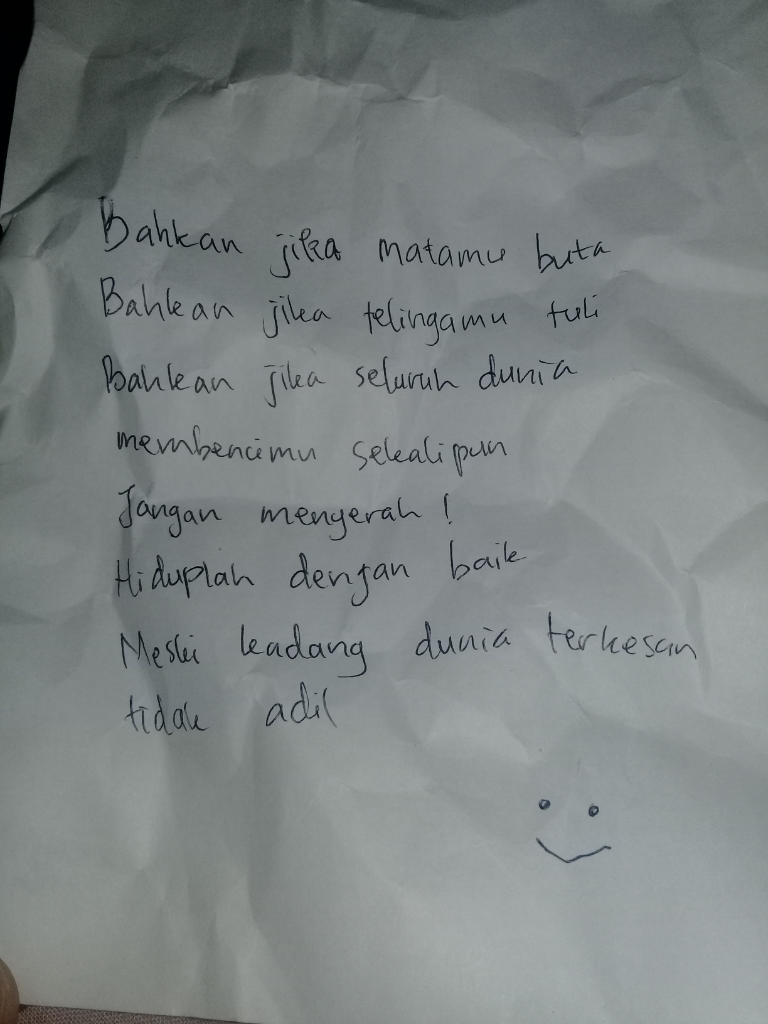 Bahkan jika matamu buta
Bahkan jika telingamu tuli
Bahkan jika seluruh dunia
membencimu sekalipun
Jangan menyerah!
Hiduplah dengan baik
Meski kadang dunia terkesan
tidak adil